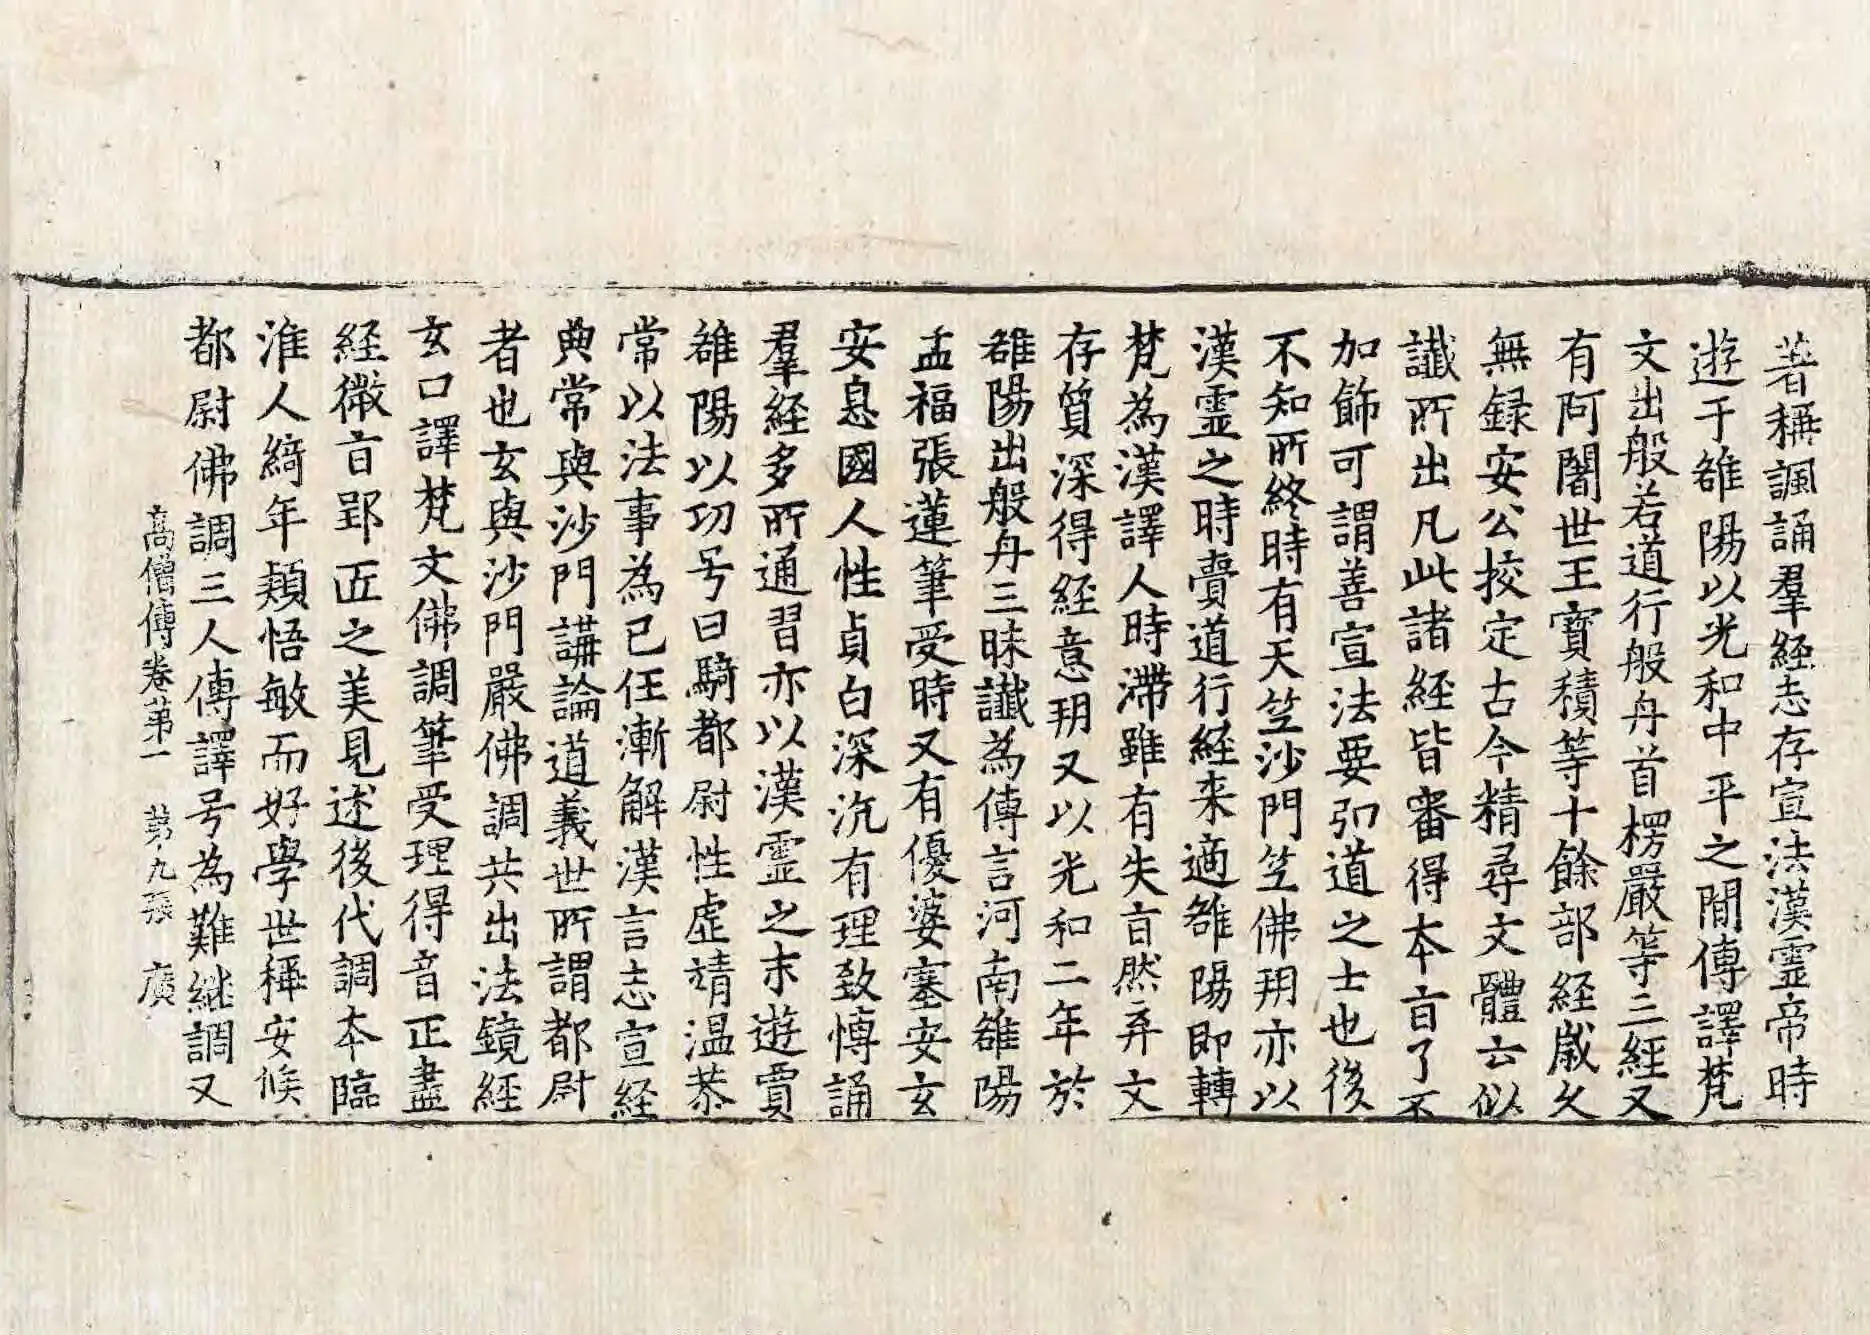 著稱諷誦羣經志存宣法漢靈帝時
遊于雒陽以光和中平之間傳譯梵
文出般若道行般舟首楞嚴等三經又
有阿闍世王寶積等十餘部經歲久
無録安公挍定古今精尋文體云似
讖所出凡此諸經皆審得本盲了不
加飾可謂善宣法要弘道之士也後
不知所終時有天竺沙門竺佛朔亦以
漢靈之時賷道行經来適雒陽即轉
梵為漢譯人時滯雖有失盲然弃文
存質深得經意朔又以光和二年於
雒陽出般舟三昧讖為傳言河南雒陽
孟福張蓮筆受時又有優婆塞安玄
安息國人性貞白深沉有理致愽誦
羣經多所通習亦以漢靈之末遊賈
雒陽以功号曰騎都尉性虛靖温恭
常以法事為己任漸解漢言志宣經
典常與沙門講論道義世所謂都尉
者也玄與沙門嚴佛調共出法鏡經
玄口譯梵文佛調筆受理得音正盡
經微盲郢匠之美見述後代調本臨
淮人綺年穎悟敏而好學世稱安候
都尉佛調三人傳譯号為難継調又
高僧傳卷第一 第九張 廣